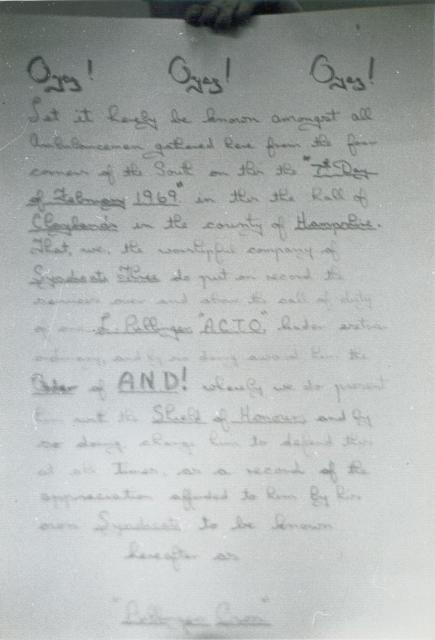 Oyez! Oyez! Oyez!
Let it hereby be known amongst all
Ambulancemen gathered here from the four
corners of the South on this the "7th Day
of February 1969" in this the hall of
in the county of Hampshire.
That, we, the worshipful company of
Syndicate Three do put on record the
services over and above the call of duty
of one L. "A.C.T.O." leader extra-
ordinary, and by so doing award him the
Order of A.N.D! whereby we do present
him with the Shield of Honour, and by
so doing, charge him to defend this
at all Times, as a record of the
appreciation afforded to him by his
own Syndicate to be known
hereafter as